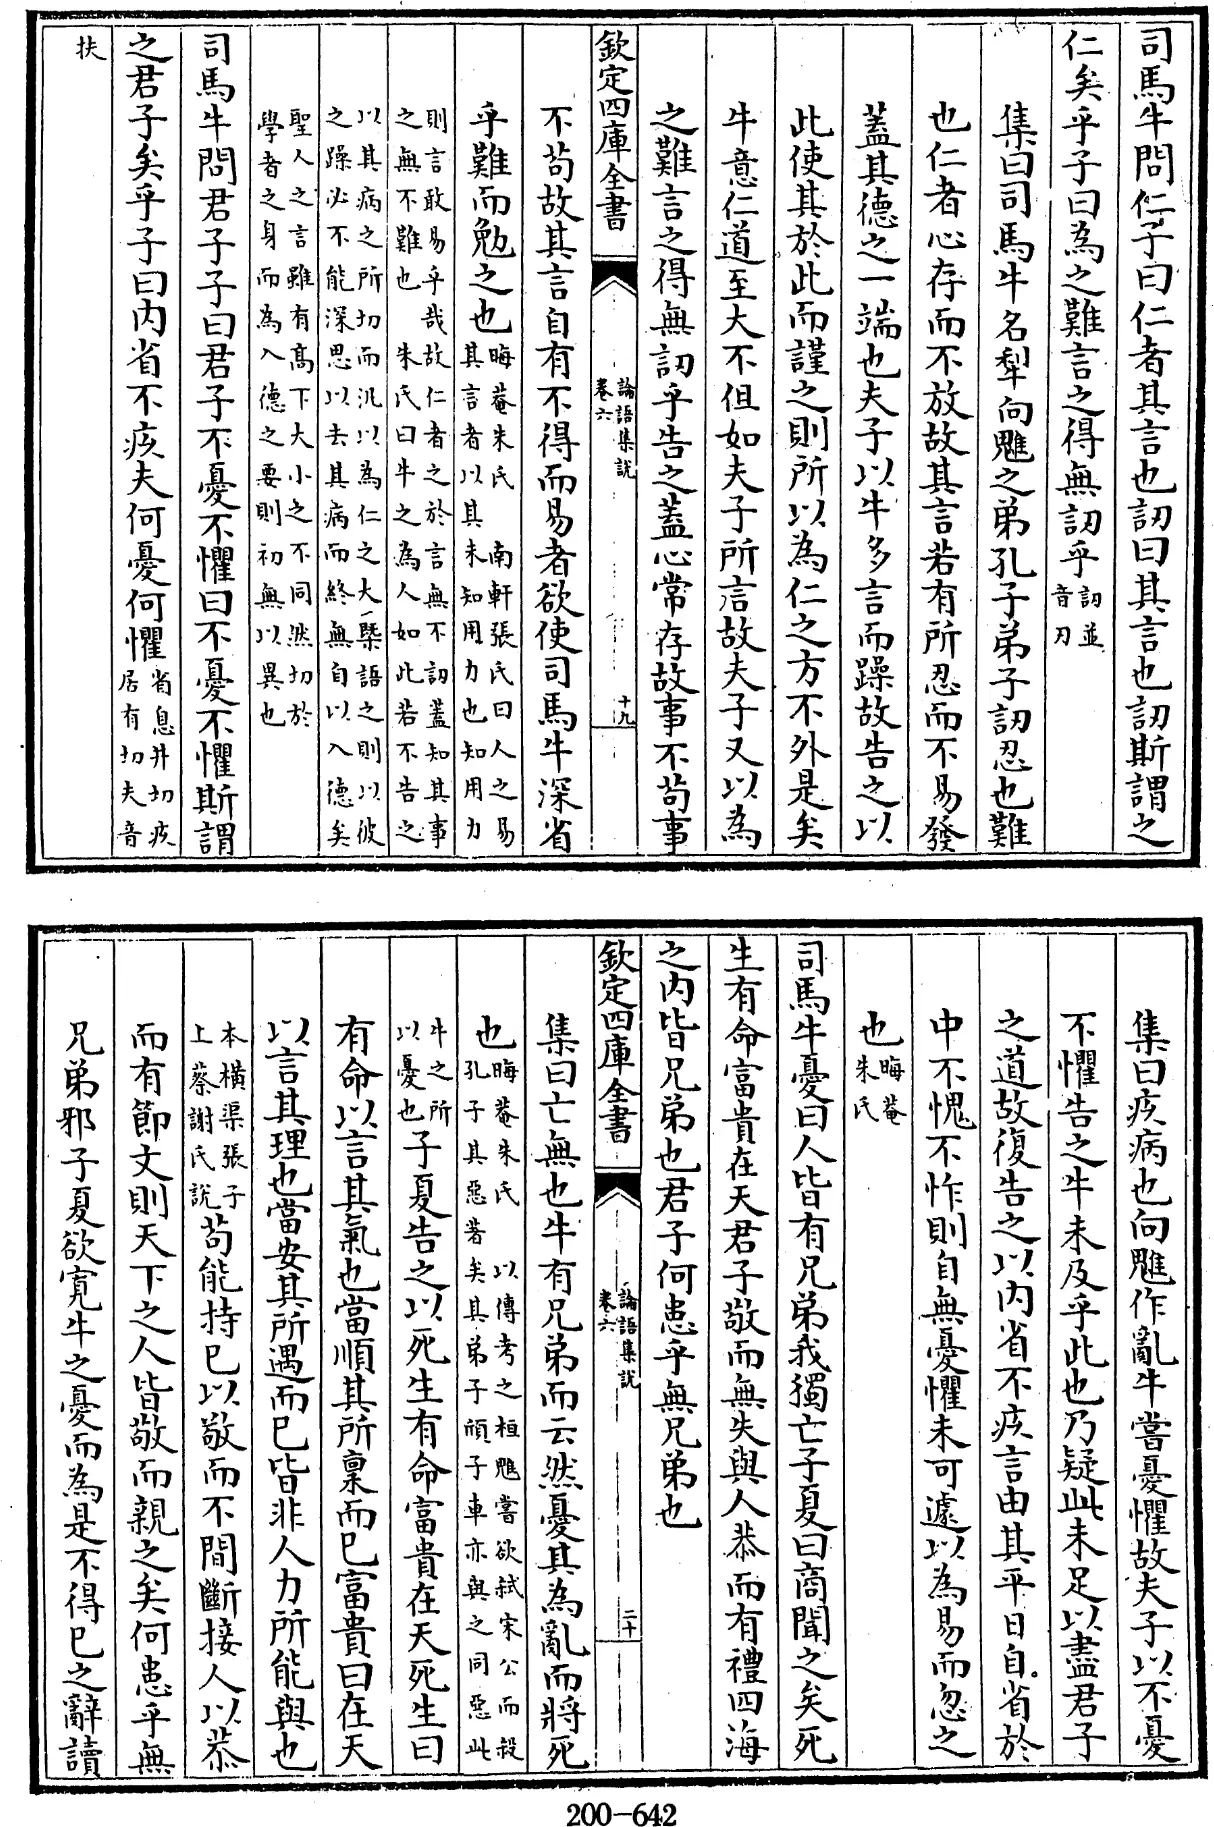 司馬牛問仁子曰仁者其言也訒曰其言也訒斯謂之
仁矣乎子曰為之難言之得無訒乎訒並音刀
集曰司馬牛名犂向魋之弟孔子弟子訒忍也難
也仁者心存而不放故其言若有所忍而不易發
蓋其德之一端也夫子以牛多言而躁故告之以
此使其於此而謹之則所以為仁之方不外是矣
牛意仁道至大不但如夫子所言故夫子又以為
之難言之得無訒乎告之蓋心常存故事不苟事
欽定四庫全書
論語集說
卷六
十九
不苟故其言自有不得而易者欲使司馬牛深省
乎難而勉之也晦菴朱氏 南軒張氏曰人之易
其言者以其未知用力也知用力
則言敢易乎哉故仁者之於言無不訒蓋知其事
之無不難也 朱氏曰牛之為人如此若不告之
以其病之所切而汎以為仁之大槩語之則以彼
之躁必不能深思以去其病而終無自以入德矣
聖人之言雖有高下大小之不同然切於
學者之身而為入德之要則初無以異也
司馬牛問君子子曰君子不憂不懼曰不憂不懼斯謂
之君子矣乎子曰內省不疚夫何憂何懼省息井切疚
居有切夫音
扶
集曰疚病也向魋作亂牛嘗憂懼故夫子以不憂
不懼告之牛未及乎此也乃疑此未足以盡君子
之道故復告之以內省不疚言由其平日自省於
中不愧不怍則自無憂懼未可遽以為易而忽之
也晦菴朱氏
司馬牛憂曰人皆有兄弟我獨亡子夏曰商聞之矣死
生有命富貴在天君子敬而無失與人恭而有禮四海
之內皆兄弟也君子何患乎無兄弟也
欽定四庫全書
論語集說
卷六
二十
集曰亡無也牛有兄弟而云然憂其為亂而將死
也晦菴朱氏 以傳考之桓魋嘗欲弒宋公而殺
孔子其惡著矣其弟子頎子車亦與之同惡此
牛之所以憂也子夏告之以死生有命富貴在天死生曰
有命以言其氣也當順其所稟而已富貴曰在天
以言其理也當安其所遇而已皆非人力所能與也
本橫渠張子上蔡謝氏說苟能持已以敬而不間斷接人以恭
而有節文則天下之人皆敬而親之矣何患乎無
兄弟邪子夏欲寬牛之憂而為是不得已之辭讀
200-642